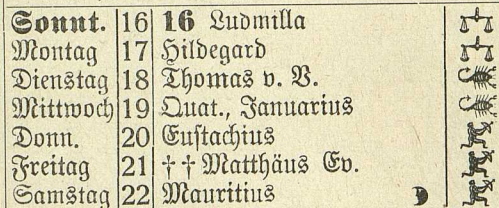 Sonnt. 16 16 Ludmilla
Montag 17 Hildegard
Dienstag 18 Thomas v. V.
Mittwoch 19 Quat., Januarius
Donn. 20 Eustachius
Freitag 21 † † Matthäus Ev.
Samstag 22 Mauritius